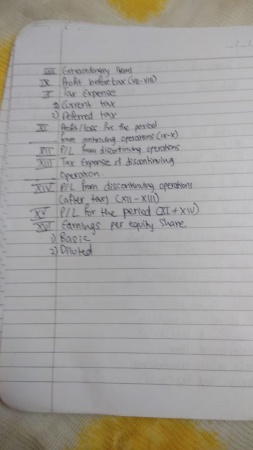 VIII Extraordinary Items
IX Profit before tax (VII-VIII)
X Tax Expense
1) Current tax
2) Deferred tax
XI Profit/loss for the period
from continuing operations (IX-X)
XII P/L from discontinuing operations
XIII Tax Expense of discontinuing
operation
XIV P/L from discontinuing operations
(after tax) (XII - XIII)
XV P/L for the period (XI + XIV)
XVI Earnings per equity share
1) Basic
2) Diluted